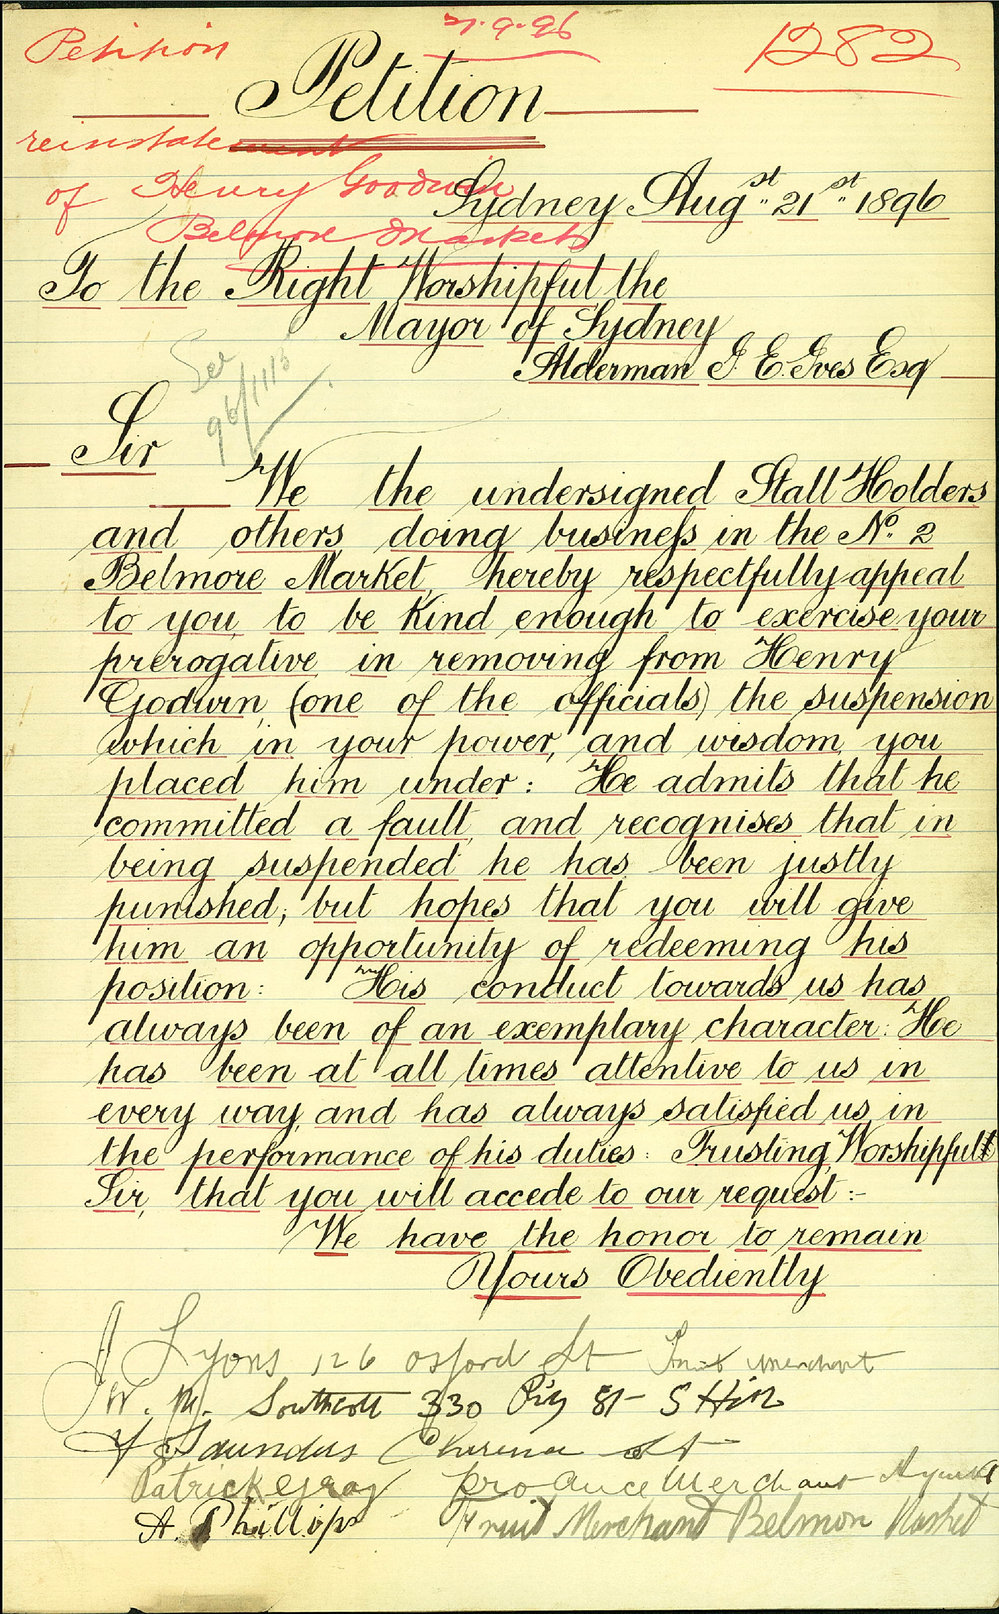 Petition
21.9.96
1282
Petition
reinstatement
of Henry Goodwin
Belmore Markets
Sydney Augst. 21st. 1896
To the Right Worshipful the
Mayor of Sydney
Alderman I. E. Ives Esq
See
96/1115
Sir
We the undersigned Stall Holders
and others, doing business in the No. 2
Belmore Market, hereby respectfully appeal
to you, to be kind enough to exercise your
prerogative in removing from Henry
Godwin, (one of the officials) the suspension
which in your power, and wisdom, you
placed him under: He admits that he
committed a fault, and recognises that in
being suspended he has been justly
punished; but hopes that you will give
him an opportunity of redeeming his
position: His conduct towards us has
always been of an exemplary character: He
has been at all times attentive to us in
every way, and has always satisfied us in
the performance of his duties: Trusting, Worshipfull
Sir, that you will accede to our request:-
We have the honor to remain
Yours Obediently
J Lyons 126 Oxford St Fruit Merchant
W. M. Southcott 330 St S Hill
Saunders Clarence St
Patrick Gray produce Merchant
A. Phillips Fruit Merchant Belmon Market